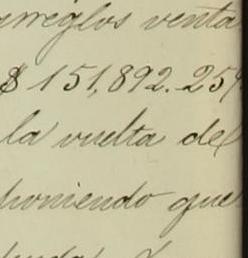 arreglos venta
$ 151,892.25
la vuelta del
poniendo que